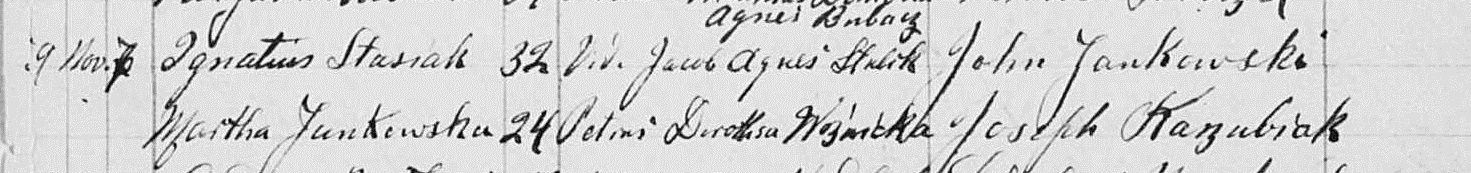 Agnes Bubacz
9 Nov. Ignatius Stasiak 32 Vid. Jacob Agnes Stelik John Jankowski
Martha Jankowska 24 Petrus Dorothea Woźnicka Joseph Kaszubiak